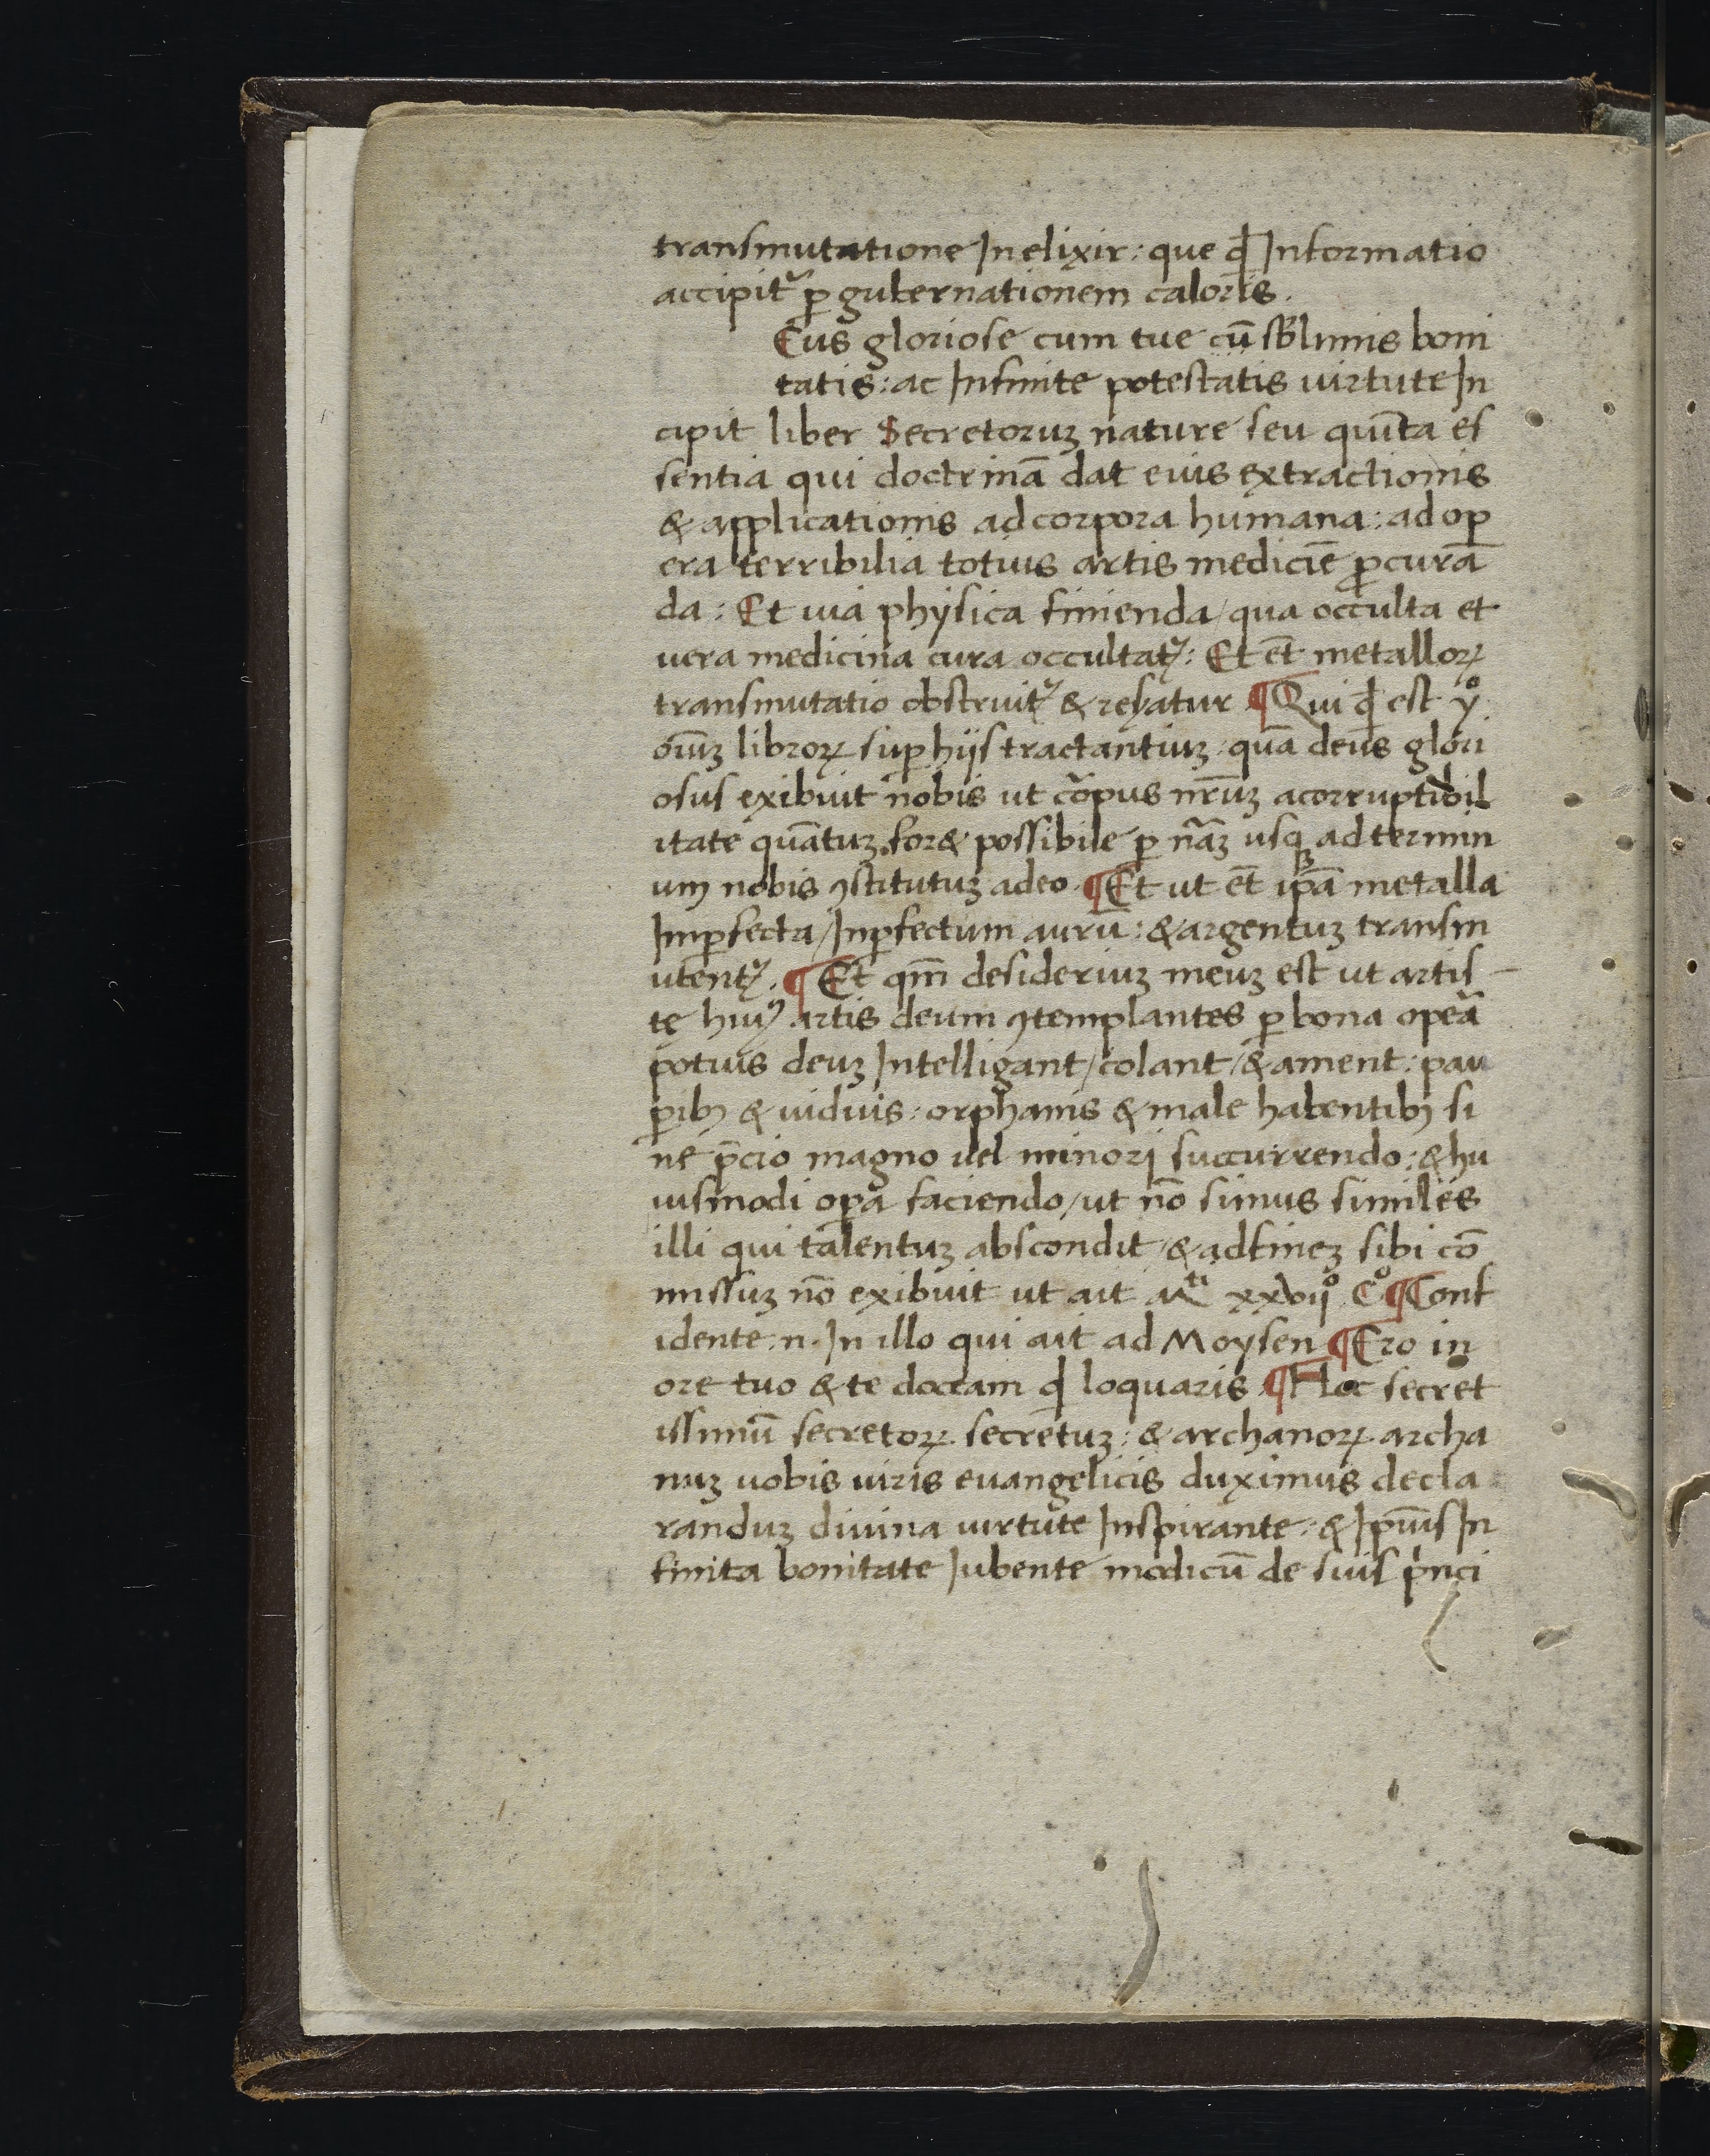 transmutatione In elixir: que qd Informatio
accipitʳ ꝑ gubernationem caloris.
Eus gloriose cum tue cū sblimis boni
tatis: ac Infinite potestatis uirtute In
cipit liber Secretoruꝫ nature seu quīta es
sentia qui doctrinā dat eius extractionis
& applicationis ad corpora humana: ad op
era terribilia totius artis medicīe ꝓcurā
da: Et uia physica finienda / qua occulta et
uera medicina cura occultatʳ: Et et̄ metalloꝝ
transmutatio obstruitʳ & reseratur ¶ Qui qd est yº
oīuꝫ libroꝝ suꝑ hijs tractantiuꝫ: quā deus glori
osus exibuit nobis ut corpus nr̄uꝫ a corruptibil
itate quātuꝫ fore possibile ꝑ nāꝫ usqꝫ ad termin
um nobis ꝯstitutuꝫ adeo. ¶ Et ut et̄ ip̄a metalla
Imꝑfecta / In ꝑfectum aurū: & argentuꝫ transm
utentʳ. ¶ Et qm̄ desideriuꝫ meuꝫ est ut artis
tę huiꝰ artis deum ꝯtemplantes ꝑ bona opeā
potius deuꝫ Intelligant / colant / & ament: pau
ꝑibꝫ & uiduis: orphanis & male habentibꝫ si
ne p̄cio magno uel minori succurrendo: & hu
iusmodi oꝑa faciendo / ut nō simus similes
illi qui talentuꝫ abscondit / & ad fineꝫ sibi cō
missuꝫ nō exibuit ut ait xxvijº Cº ¶ Conf
idente .n. In illo qui ait ad Moysen ¶ Ero in
ore tuo & te doceam qd loquaris ¶ Hoc secret
issimū secretoꝝ secretuꝫ: & archanoꝝ archa
nuꝫ uobis uiris euangelicis duximus decla
randuꝫ diuina uirtute Inspirante: & Ip̄ius In
finita bonitate Iubente modicū de suis pⁱnci